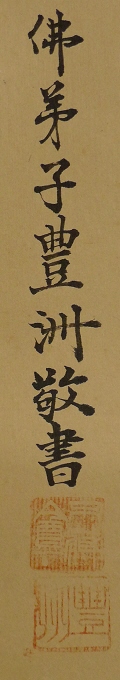 佛弟子豊洲敬書